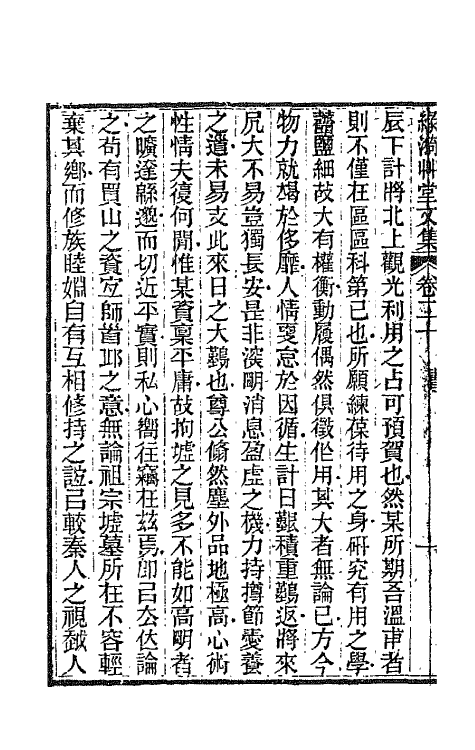 綠漪艸堂文集 卷二十
辰下計將北上觀光利用之占可預賀也然某所期吾溫甫者
則不僅在區區科第已也所願練葆待用之身硏究有用之學
鹽細故大有權衡動履偶然俱徵作用其大者無論已方今
物力就竭於侈靡人情耎怠於因循生計日艱積重鷄返將來
尻大不易豈獨長安是非淡嗍消息盈虛之機力持撙節愛養
之還未易支此來日之大鷄也尊公翛然塵外品地極高心術
性情夫復何閒惟某資稟平庸故拘墟之見多不能如高明者
之曠逵緜邈而切近平實則私心嚮往竊在茲焉卽㠯公伏論
之苟有買山之資㝎師啚邱之意無論祖宗墟墓所在不容輕
棄其鄕而修族睦婣自有互相修持之誼㠯較秦人之視越人